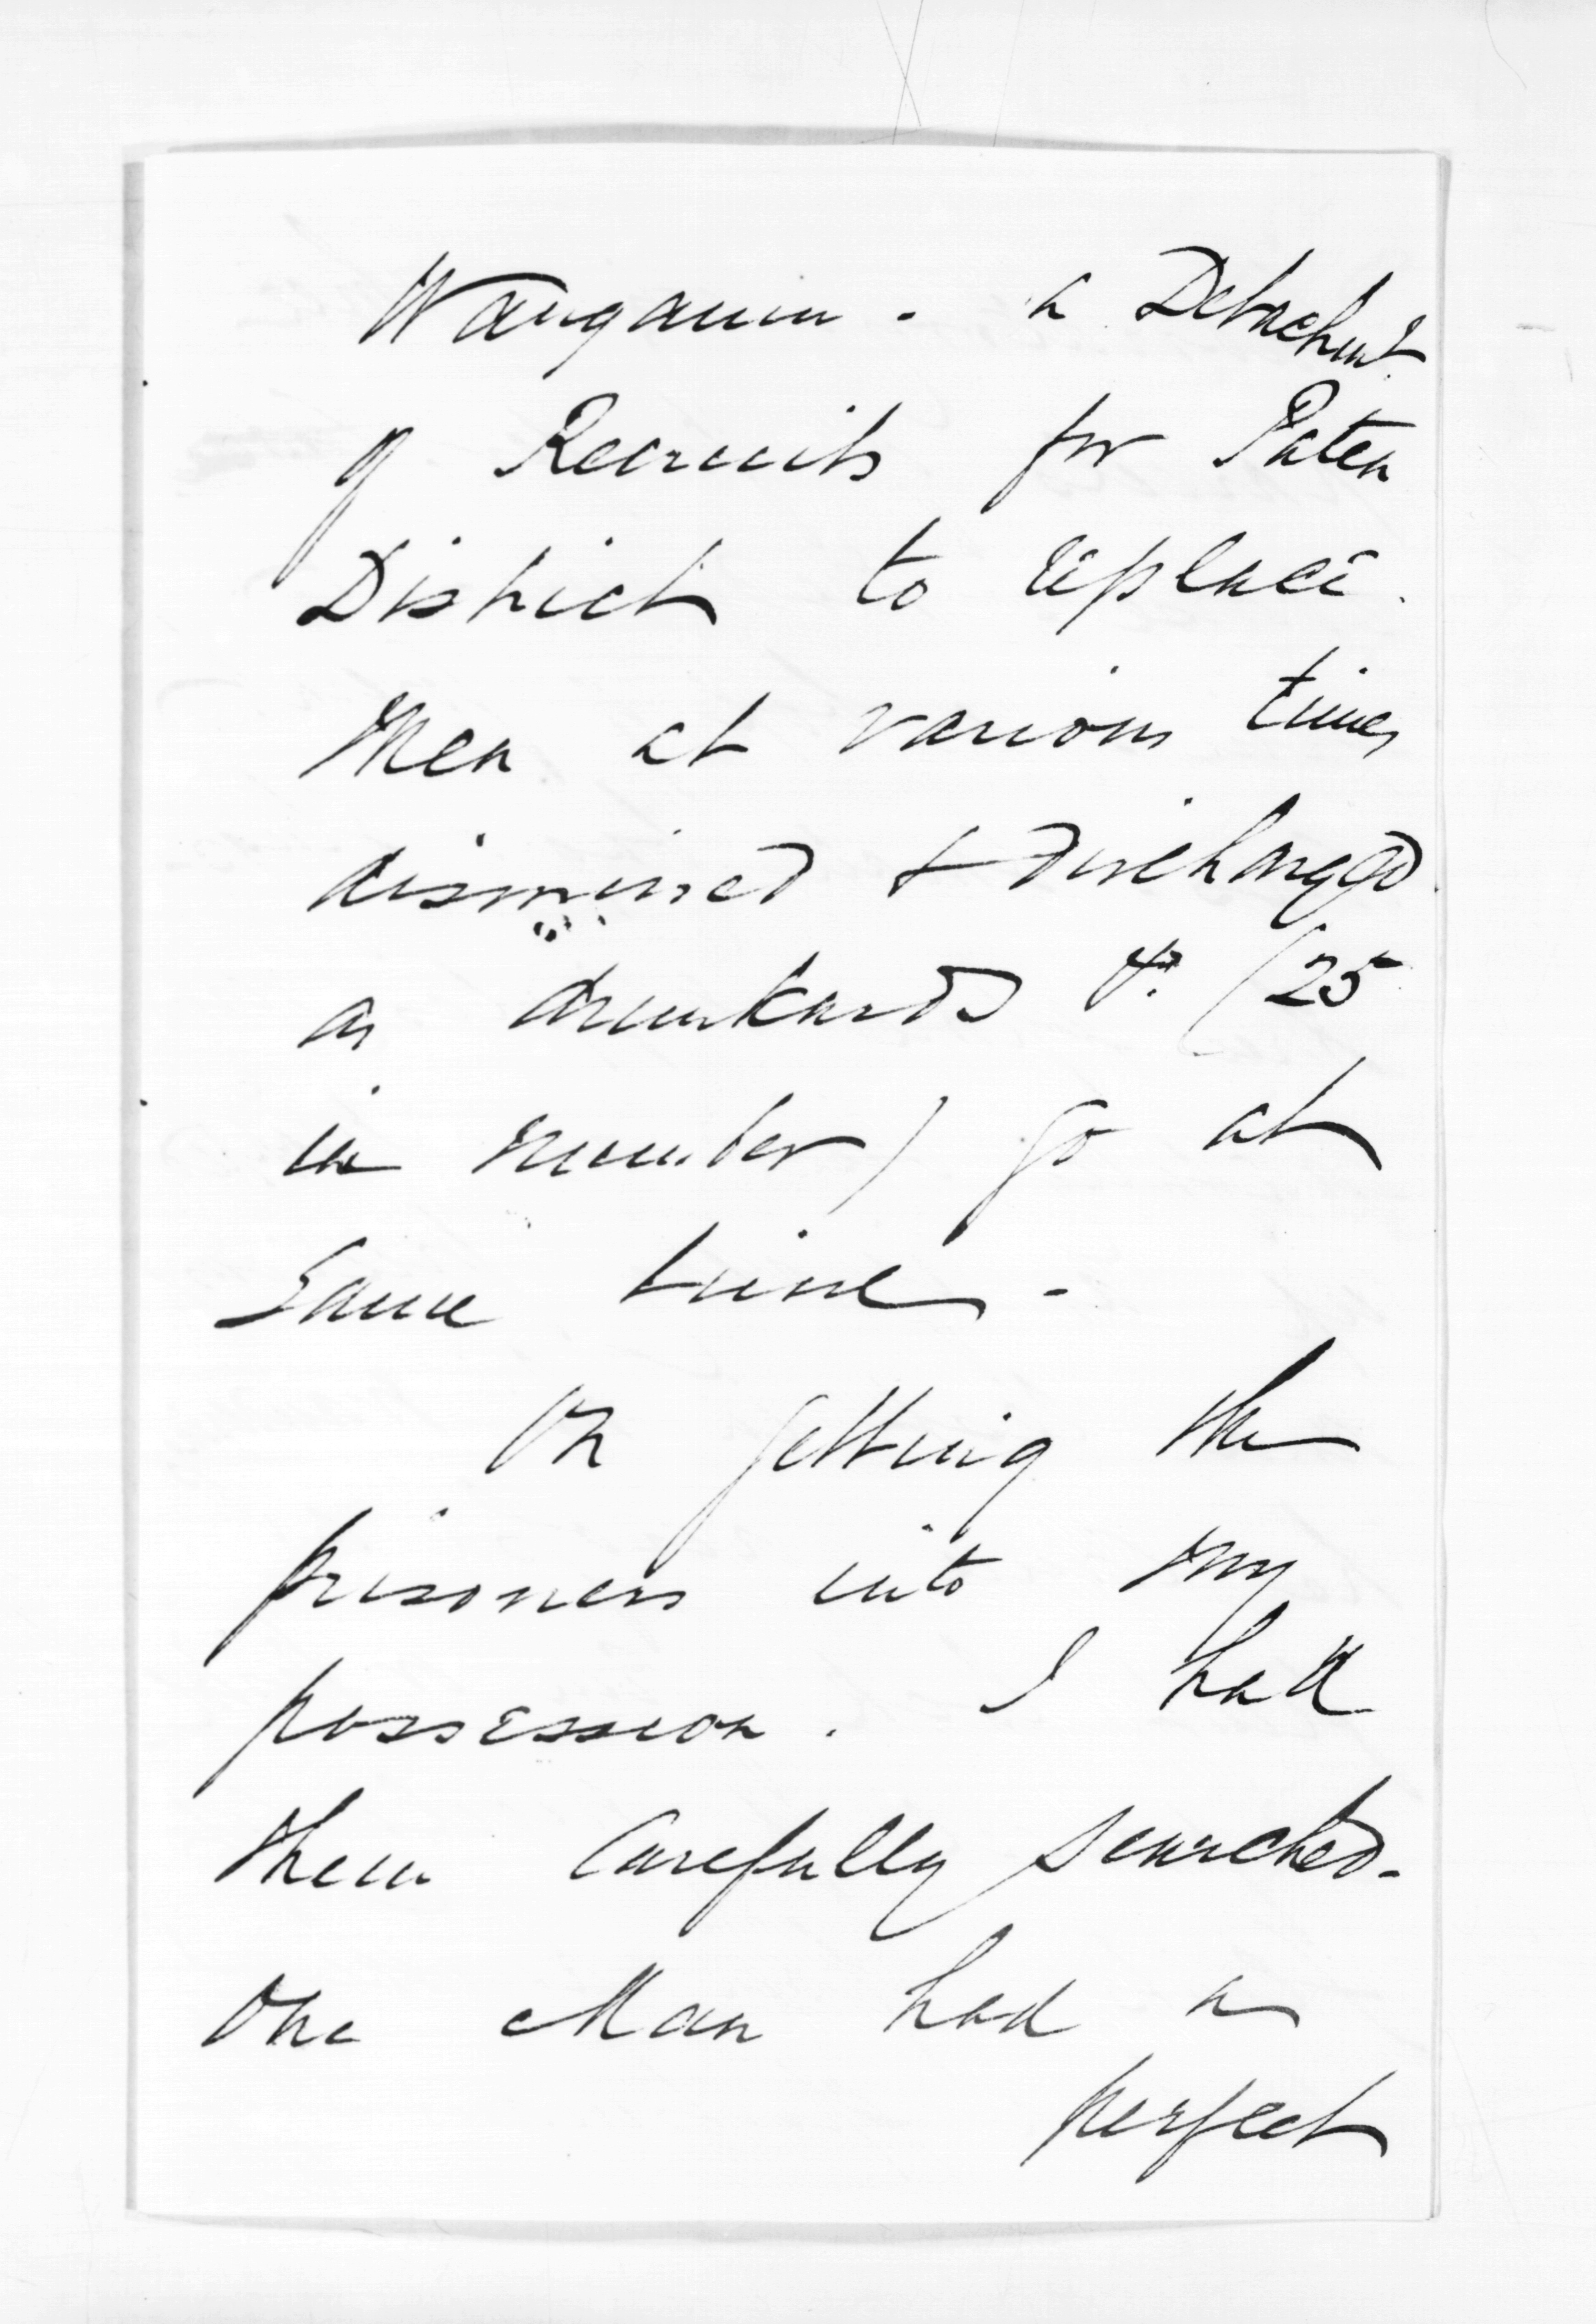 Wanganui. a Detachmt
of Recruits for Patea
District to replace.
Men at various times
dismissed & discharged
as drunkards &c. (25
in number) go at
same time -
On getting the
prisoners into my
possession. I had
them carefully searched -
One Man had a
perfect